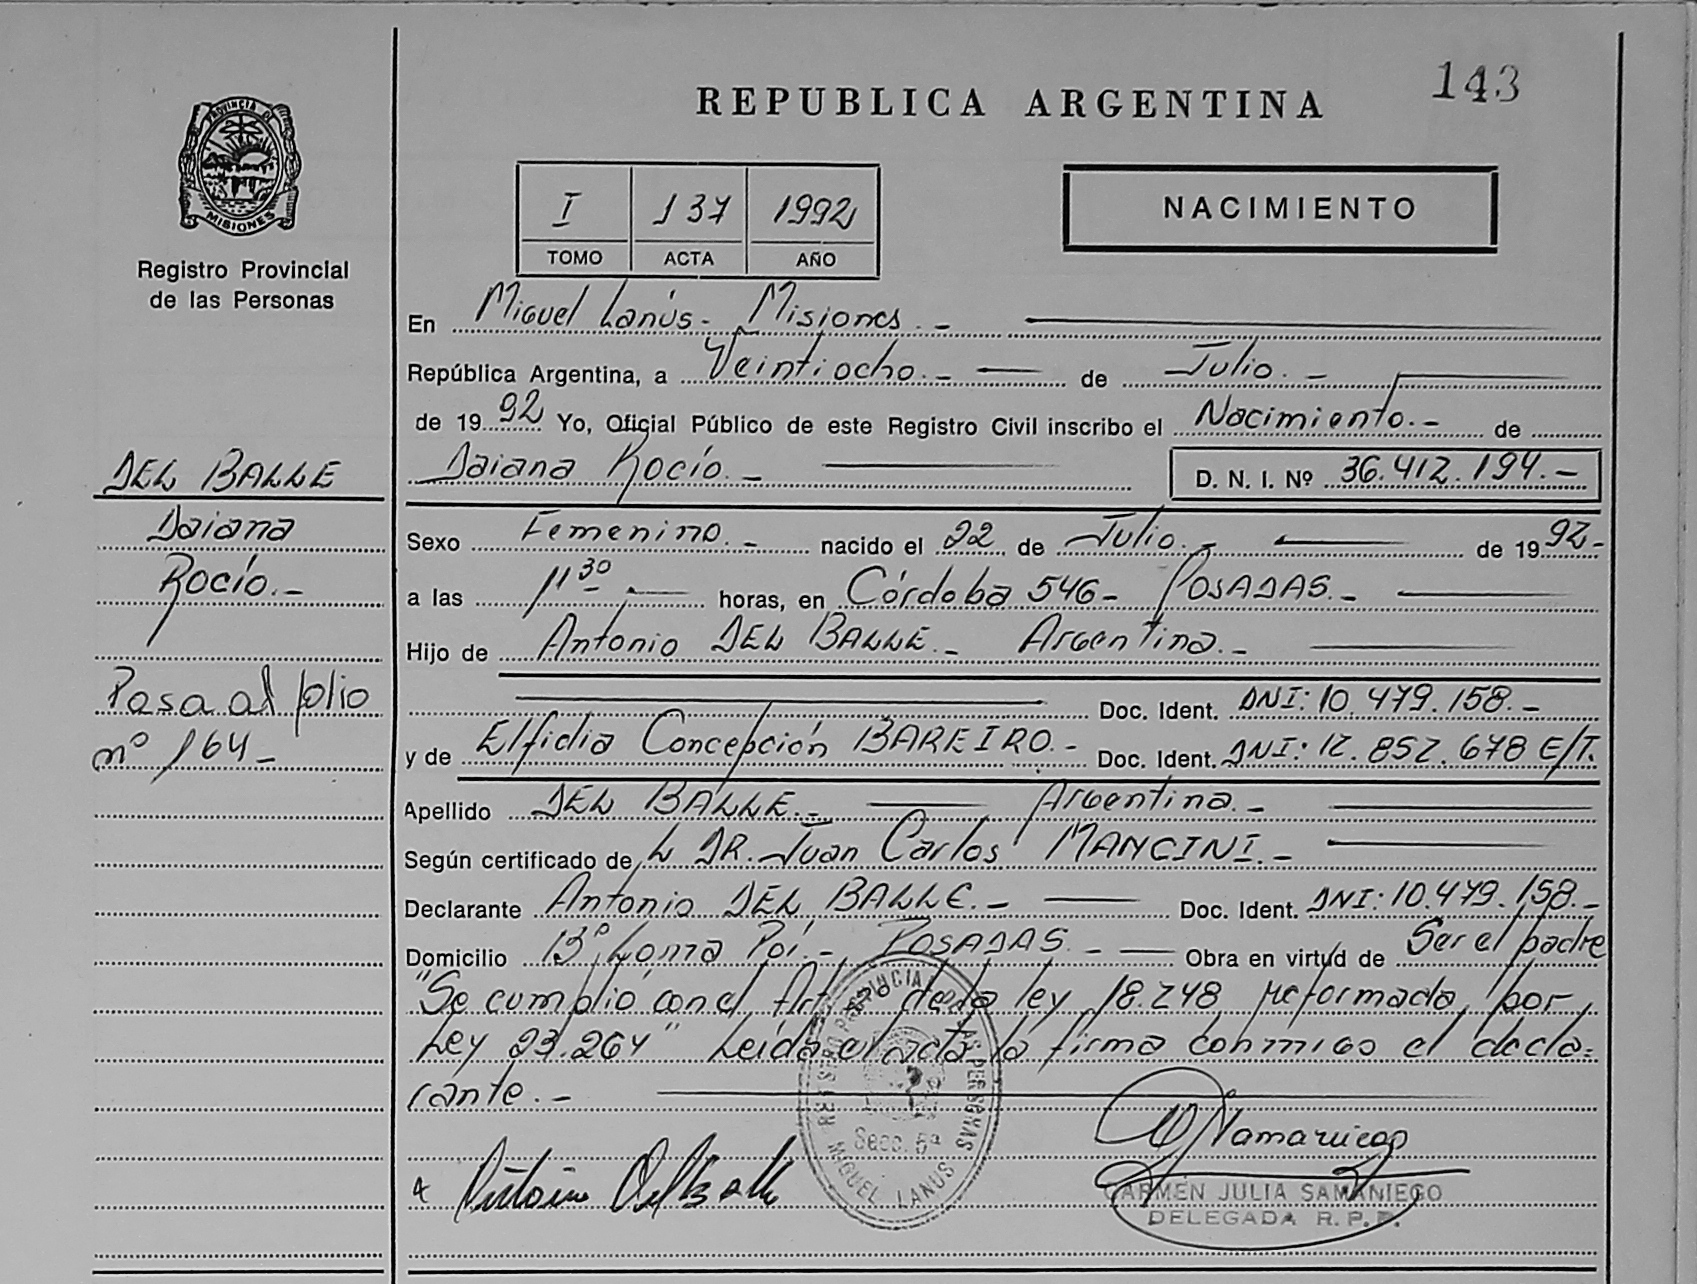 143
REPUBLICA ARGENTINA
PROVINCIA DE MISIONES
Registro Provincial
de las Personas
I 137 1992
TOMO ACTA AÑO
NACIMIENTO
En Miguel Lanús - Misiones. -
República Argentina, a Veintiocho. - de Julio. -
de 1992 Yo, Oficial Público de este Registro Civil inscribo el Nacimiento. - de
Daiana Rocío. - D. N. I. Nº 36.412.194. -
Sexo Femenino. - nacido el 22 de Julio. - de 1992-
a las 11 30 - horas, en Córdoba 546 - POSADAS. -
Hijo de Antonio DEL BALLE. - Argentina. -
Doc. Ident. DNI: 10.479.158. -
y de Elfidia Concepción BAREIRO. - Doc. Ident. DNI: 12.852.678 E/T.
Apellido DEL BALLE. - Argentina. -
Según certificado de DR. Juan Carlos MANCINI. -
Declarante Antonio DEL BALLE. - Doc. Ident. DNI: 10.479.158. -
Domicilio 13º Loma Poí. - POSADAS. - Obra en virtud de Ser el padre
"Se cumplió con el Art. de la ley 18.248 reformada por
Ley 23.264" Leída el acta la firma conmigo el decla=
rante. -
DEL BALLE
Daiana
Rocío. -
Pasa al folio
nº 164 -
REGISTRO PROVINCIAL DE LAS PERSONAS
Secc. 5ª
MIGUEL LANUS
Antonio Del Balle
CARMEN JULIA SAMANIEGO
DELEGADA R. P. P.